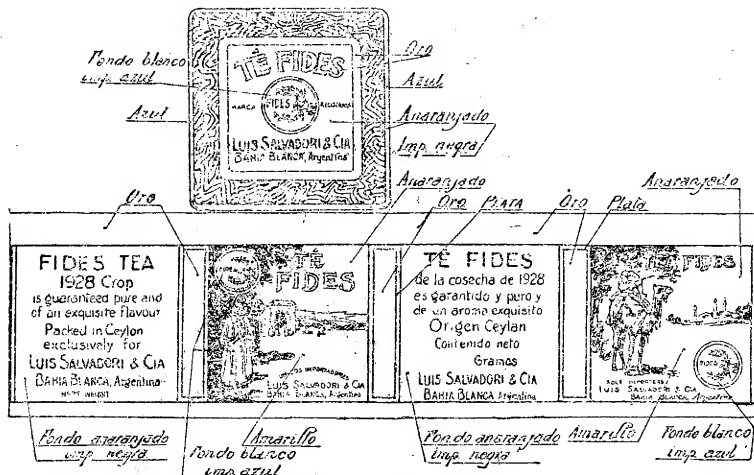 Fondo blanco
imp. azul
Azul
TÉ FIDES
MARCA
FIDES
REGISTRADA
LUIS SALVADORI & CIA
BAHIA BLANCA, Argentina
Oro
Azul
Anaranjado
Imp. negra
Oro
Anaranjado
Oro
Plata
Oro
Plata
Anaranjado
FIDES TEA
1928 Crop
is guaranteed pure and
of an exquisite flavour
Packed in Ceylon
exclusively for
LUIS SALVADORI & CIA
BAHIA BLANCA, Argentina
NETT WEIGHT
TÉ
FIDES
UNICOS IMPORTADORES
LUIS SALVADORI & CIA
BAHIA BLANCA, Argentina
TÉ FIDES
de la cosecha de 1928
es garantido y puro y
de un aroma exquisito
Origen Ceylan
Contenido neto
Gramos
LUIS SALVADORI & CIA
BAHIA BLANCA Argentina
TÉ FIDES
FIDES
SOLE IMPORTERS
LUIS SALVADORI & CIA
BAHIA BLANCA, Argentina
Fondo anaranjado
imp. negra
Fondo blanco
imp. azul
Amarillo
Fondo anaranjado
imp. negra
Amarillo
Fondo blanco
imp. azul